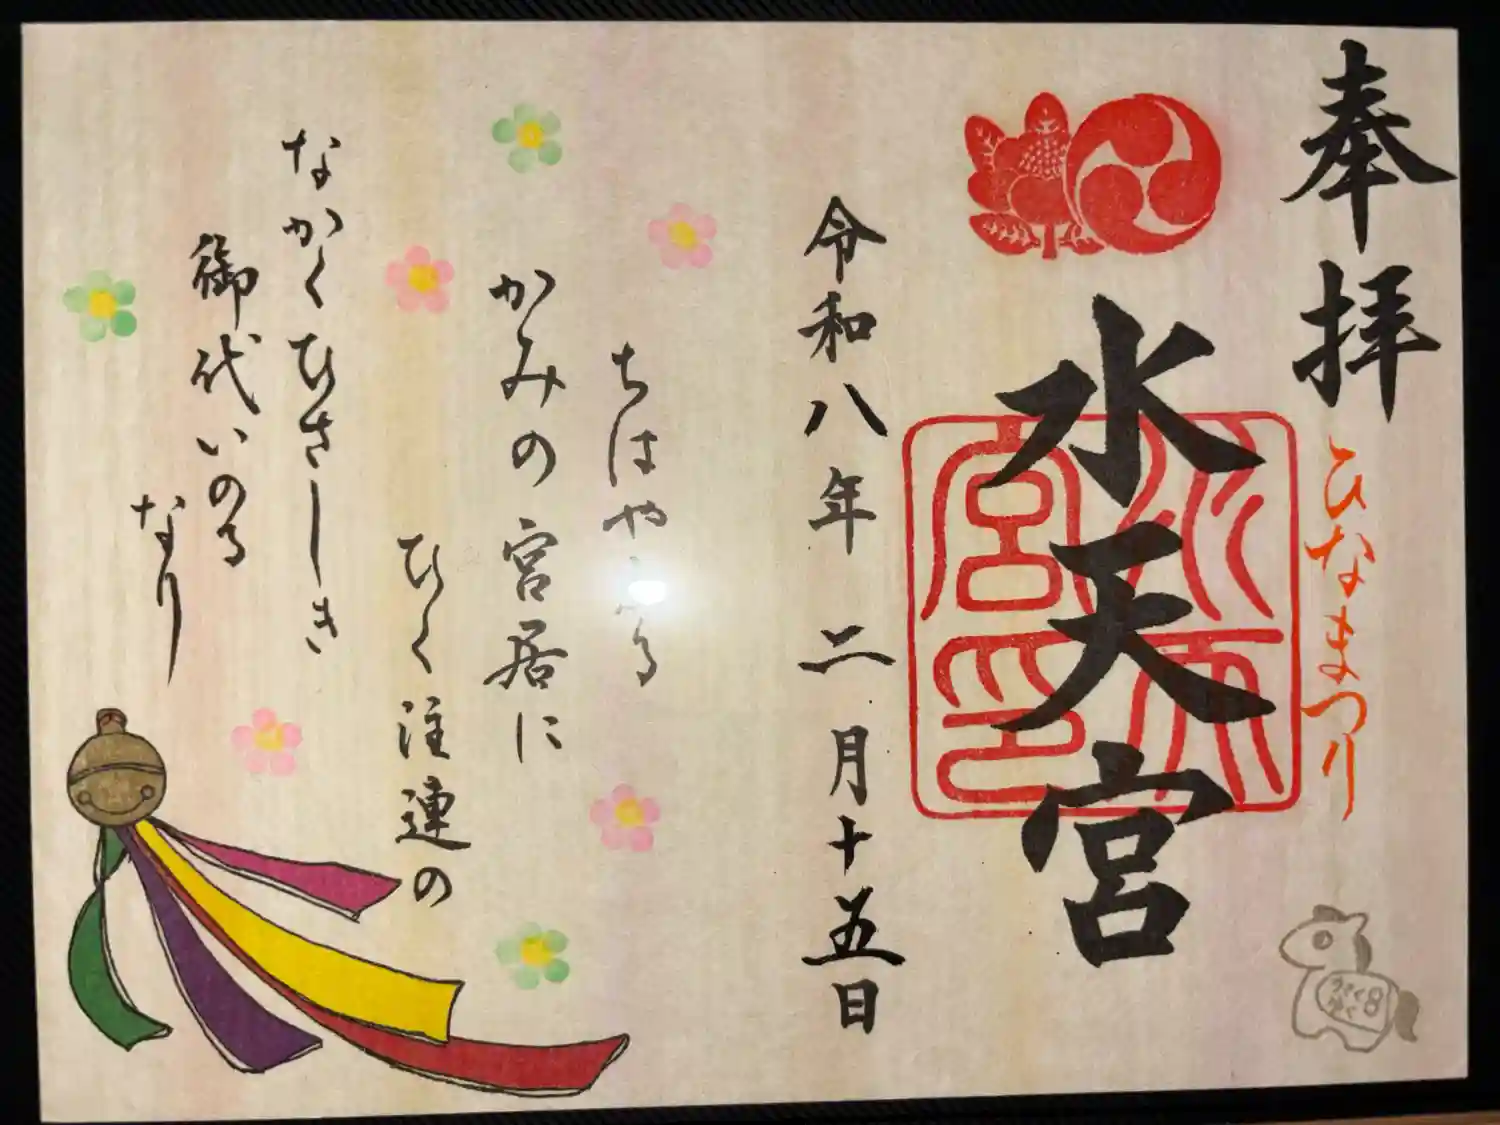 奉拝
ひなまつり
水天宮
水天宮印
令和八年二月十五日
ちはやふる
かみの宮居に
ひく注連の
なかくひさしき
御代いのる
なり